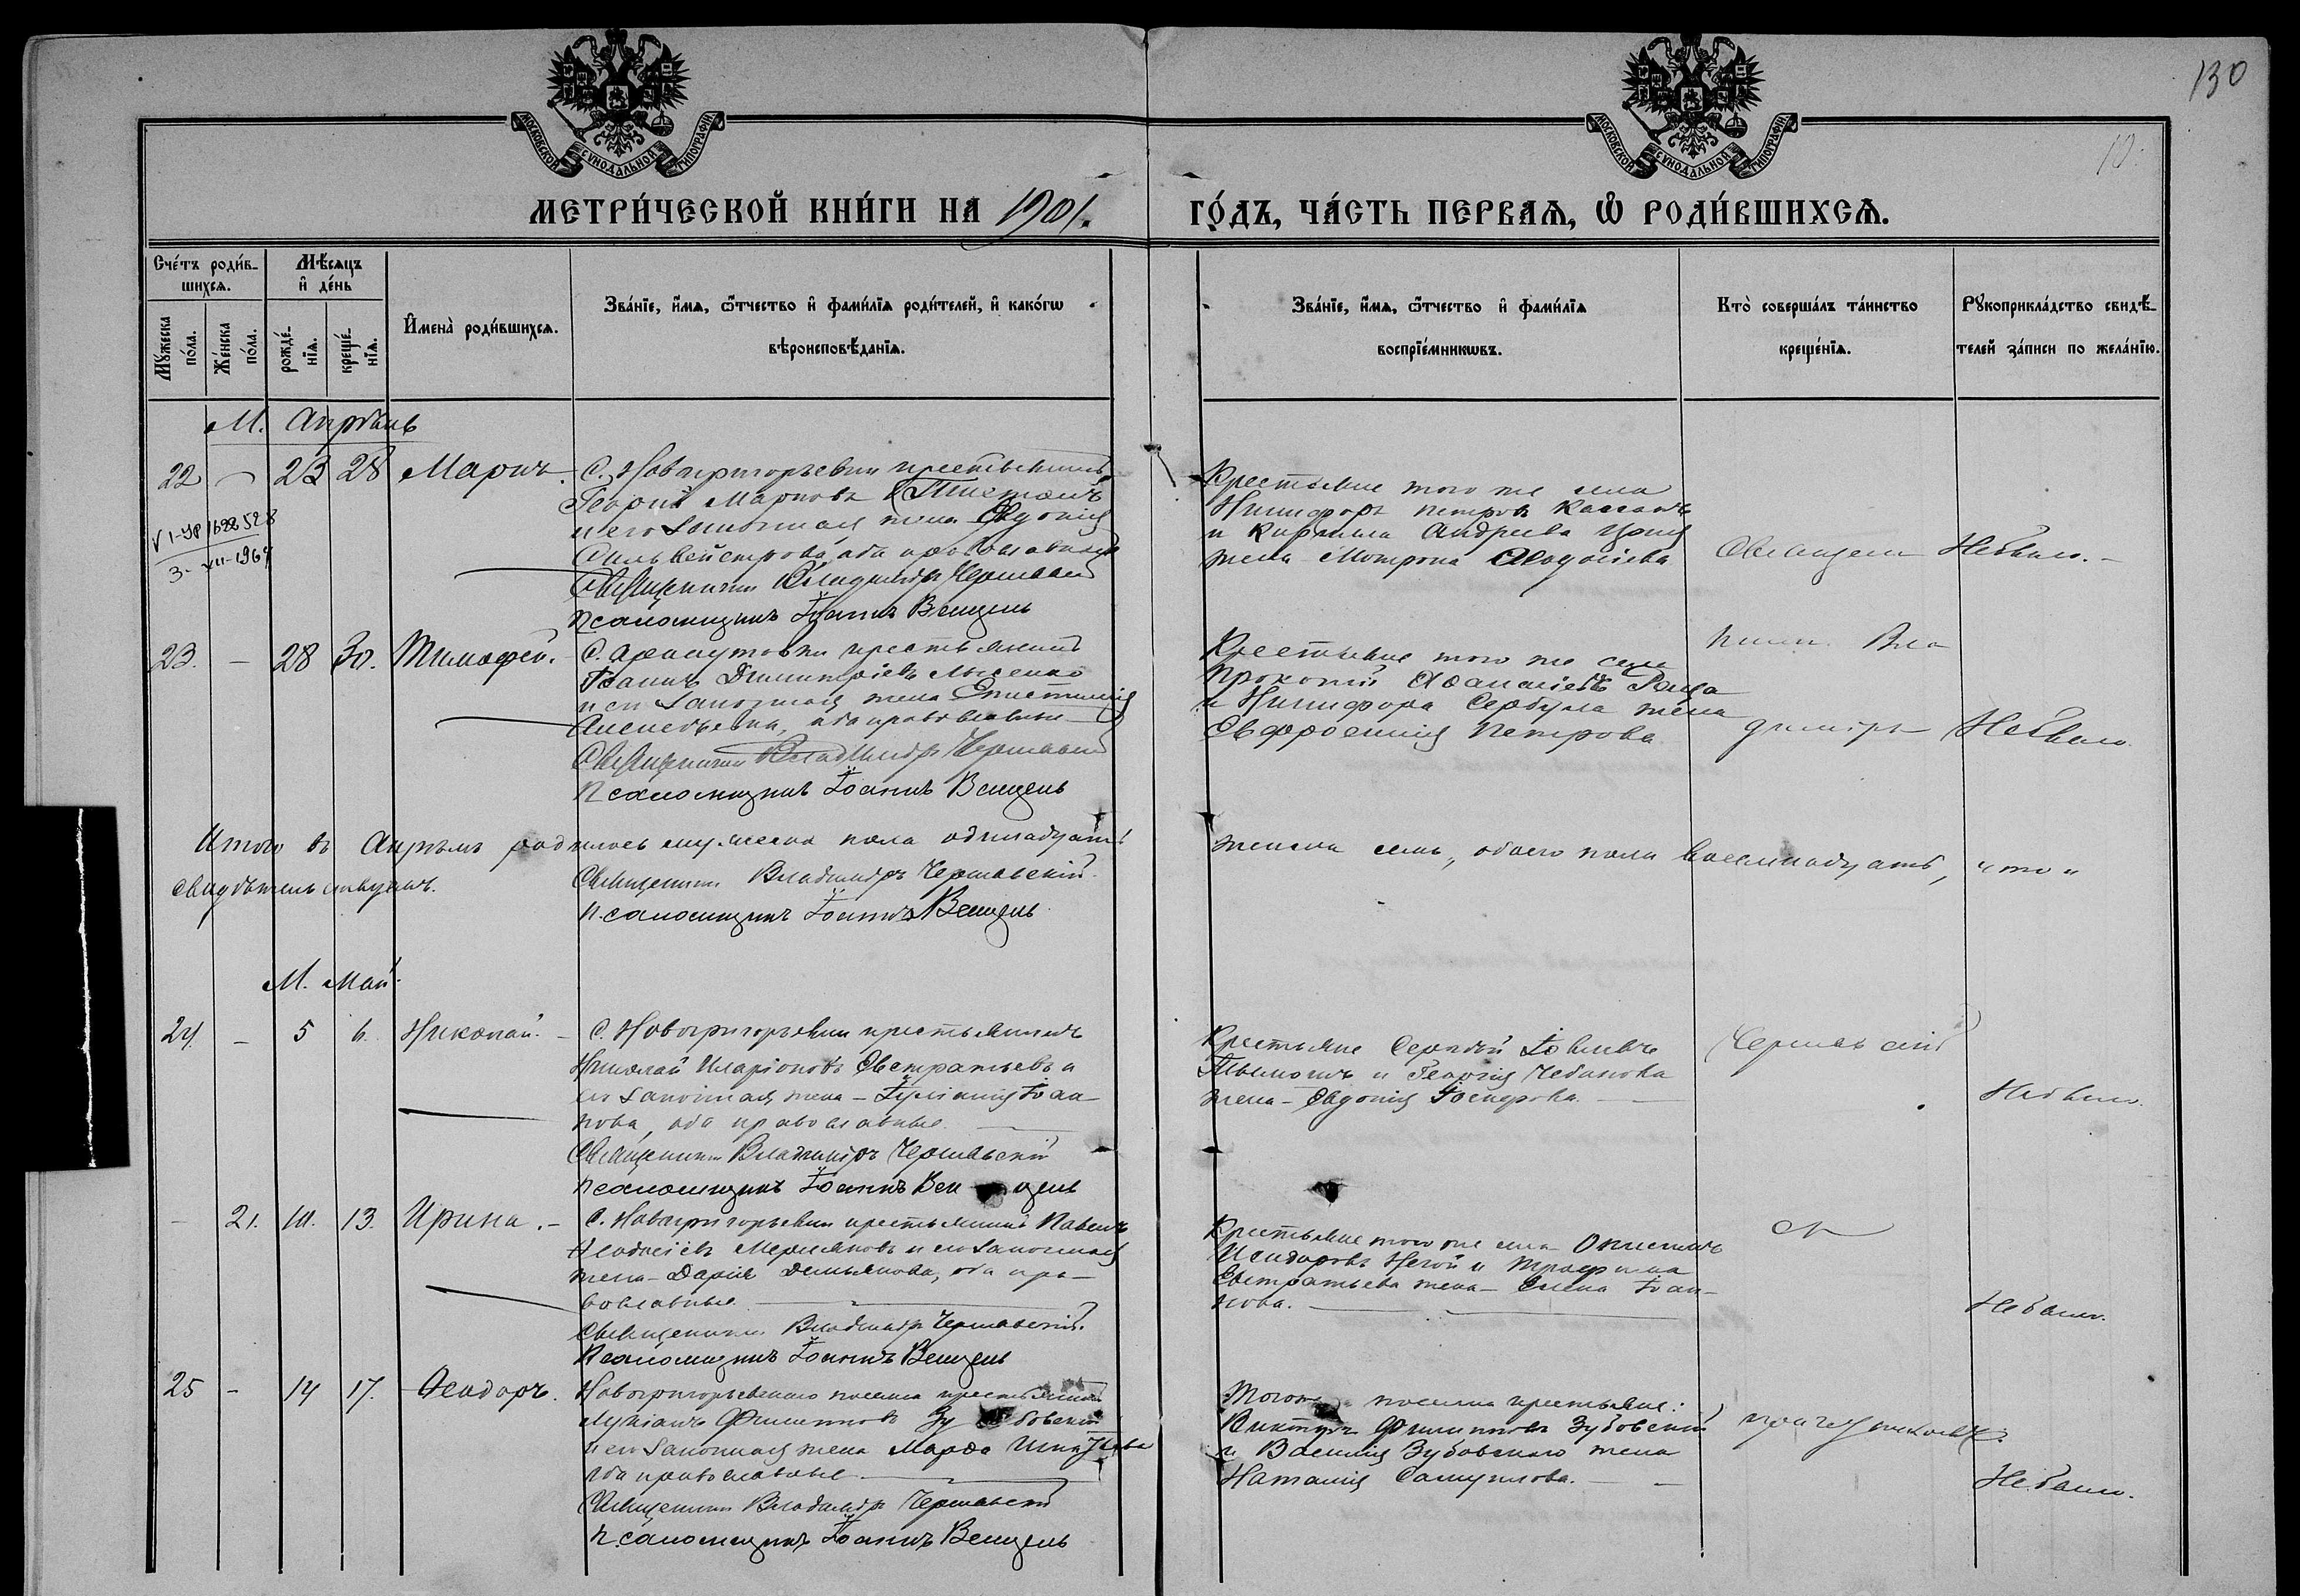 130
10.
МОСКОВСКОЙ СѴНОДАЛЬНОЙ ТИПОГРАФІИ
МОСКОВСКОЙ СѴНОДАЛЬНОЙ ТИПОГРАФІИ
МЕТРИ́ЧЕСКОЙ КНИ́ГИ НА 1901. ГО́ДЪ, ЧА́СТЬ ПЕРВАѦ, Ѽ РОДИ́ВШИХСѦ.
Счéтъ роди́в-
шихсѧ.
Мꙋжеска пóла.
Жéнска пóла.
Мѣ́сѧцъ
и҆ дéнь
рождé-
нїѧ.
крещé-
нїѧ.
И҆мена̀ роди́вшихсѧ.
Звáнїе, и҆́мѧ, ѻ҆́тчество и҆ фами́лїѧ роди́телей, и҆ какóгѡ
вѣроисповѣ́данїѧ.
Звáнїе, и҆́мѧ, ѻ҆́тчество и҆ фами́лїѧ
воспрїе́мникѡвъ.
Ктò совершáлъ тáинство
крещéнїѧ.
Рꙋкоприклáдство свидѣ́-
телей зáписи по желáнїю.
М. Апрѣль
22 — 23 28 Маркъ. С. Новогригорьевки крестьянинъ
Георгій Марковъ
и его законная жена Евдокія
Сильвейстрова, оба православные
Священникъ Владиміръ Чернявскій
Псаломщикъ Іоаннъ Венцель
Крестьяне того же села
Никифоръ Петровъ
и Кирилла Андреева
жена Мотрона Авдосіева
Священ Не было. —
23. — 28 30. Тимофей. С. крестьянинъ
Іоаннъ Димитріевъ Лысенко
и его законная жена Епистимія
Алексѣевна, оба православные
Священникъ Владиміръ Чернявскій
Псаломщикъ Іоаннъ Венцель
Крестьяне того же села
Прокопій Аѳанасіевъ
и Никифора Сербула жена
Евфросинія Петрова
никъ Вла
диміръ Не было.
Итого въ Апрѣлѣ родилось мужеска пола одинадцать женска семь, обоего пола восемнадцать, что и
свидѣтельствуемъ.
Священникъ Владиміръ Чернявскій
Псаломщикъ Іоаннъ Венцель
М. Май.
24. — 5 6. Николай. — С. Новогригорьевки крестьянинъ
Николай Иларіоновъ Евстратьевъ и
его законная жена — Іуліанія Іоан-
нова, оба православные.
Священникъ Владиміръ Чернявскій
Псаломщикъ Іоаннъ Венцель
Крестьяне
и Георгія Чебанова
жена — Евдокія Іосифова.
Чернявскій
Не было.
— 21. 10. 13. Ирина. — С. Новогригорьевки крестьянинъ Павелъ
Ѳеодосіевъ и его законная
жена — Дарія Демьянова, оба пра-
вославные.
Священникъ Владиміръ Чернявскій.
Псаломщикъ Іоаннъ Венцель
Крестьяне того же села
Исидоровъ Негой и Трофима
Евстратьева жена — Елена Іоан-
нова.
съ
Не было.
25 — 14 17. Ѳеодоръ. Новогригорьевскаго поселка крестьянинъ
Лукіанъ Филипповъ Зубовскій
и его законная жена Марѳа
оба православные
Священникъ Владиміръ Чернявскій
Псаломщикъ Іоаннъ Венцель
Того же поселка крестьяне:
Викторъ Филипповъ Зубовскій
и Василія Зубовскаго жена
Наталія Самуилова.
Не было.